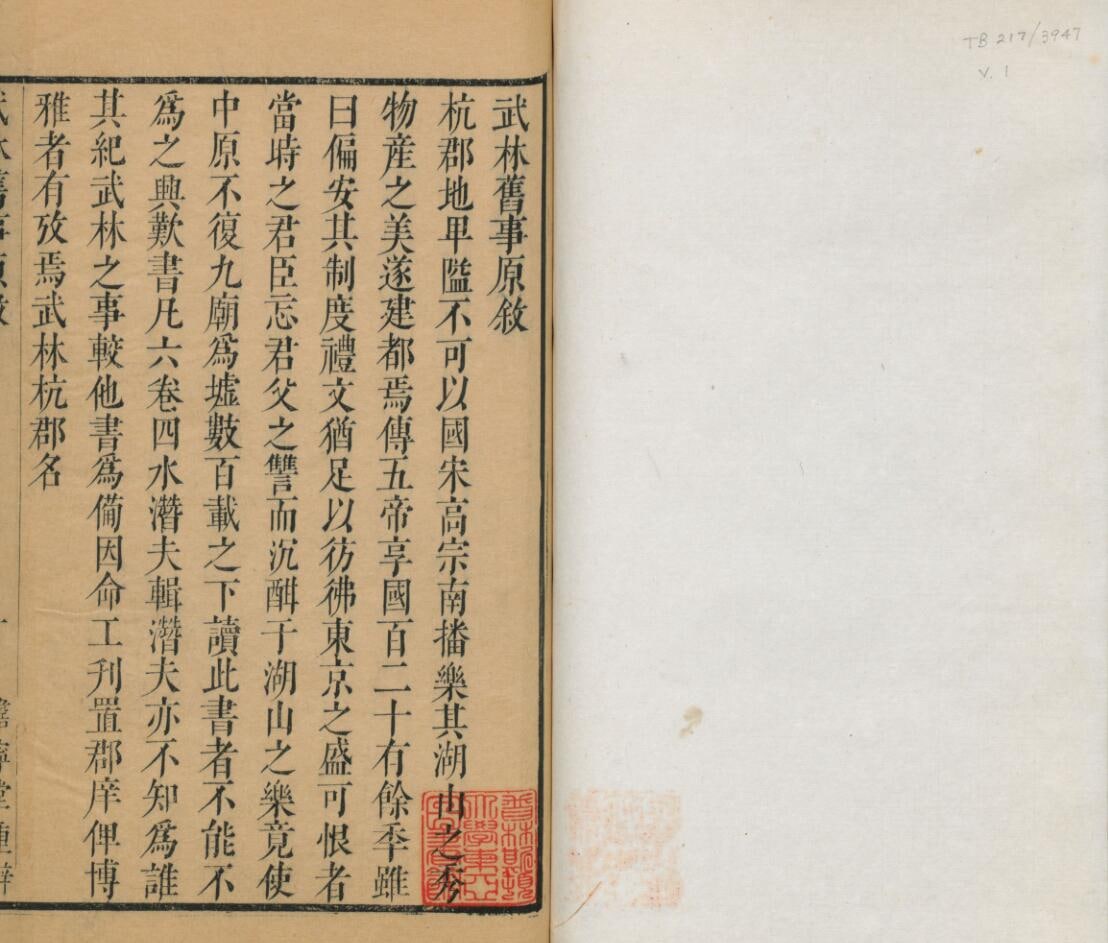 TB 217/3947
v. 1
武林舊事原敘
杭郡地卑隘不可以國宋高宗南播樂其湖山之秀
物産之美遂建都焉傳五帝享國百二十有餘秊雖
曰偏安其制度禮文猶足以彷彿東京之盛可恨者
當時之君臣忘君父之讐而沉酣于湖山之樂竟使
中原不復九廟爲墟數百載之下讀此書者不能不
爲之興歎書凡六卷四水潛夫輯潛夫亦不知爲誰
其紀武林之事較他書爲備因命工刋置郡庠俾博
雅者有攷焉武林杭郡名
武林舊事原敘
普林斯頓
大學東亞
圖書館